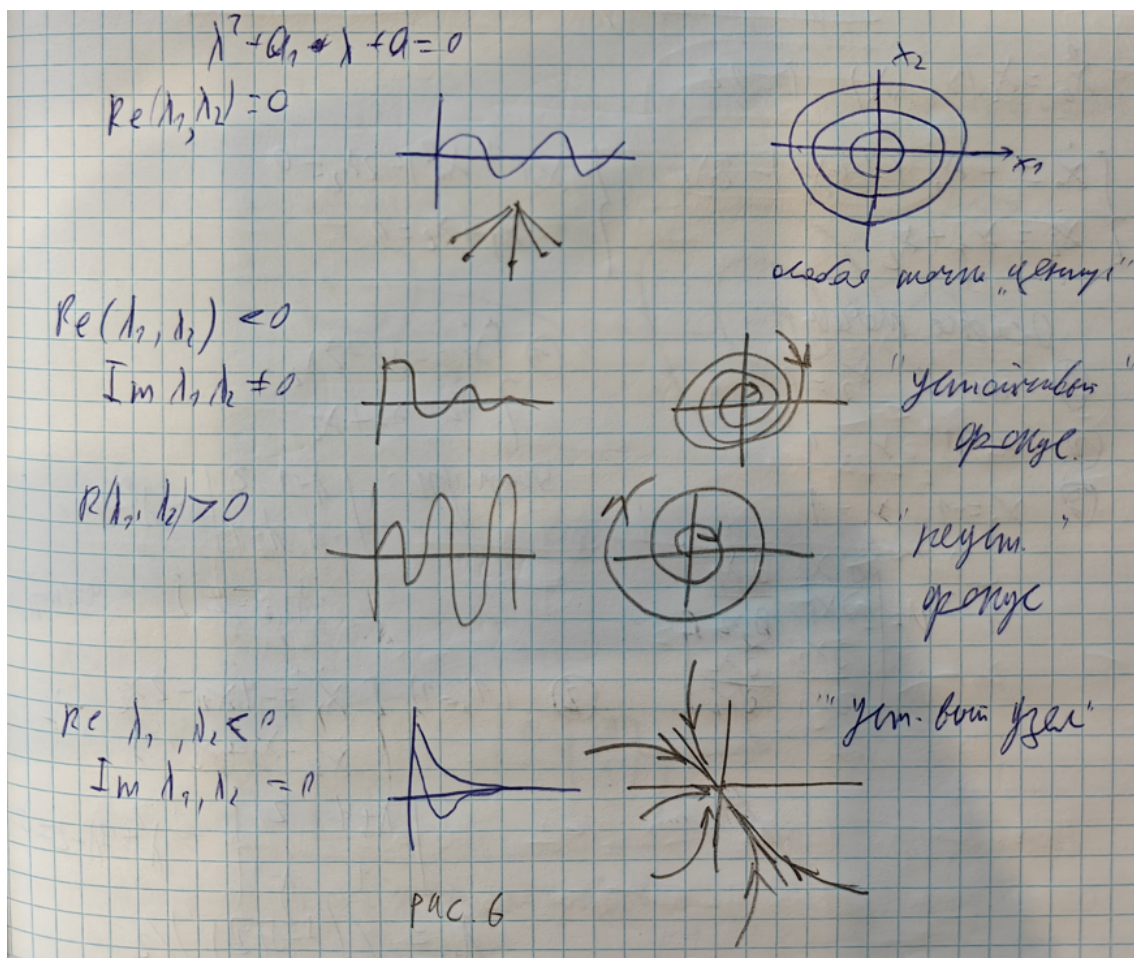 λ² + a₁ λ + a = 0
Re(λ₁, λ₂) = 0
x₂
x₁
особая точка „центр"
Re(λ₁, λ₂) < 0
Im λ₁ λ₂ ≠ 0
"устойчивый"
фокус.
R(λ₁, λ₂) > 0
"неуст."
фокус
Re λ₁, λ₂ < 0
Im λ₁, λ₂ = 0
"уст-вый узел"
рис. 6